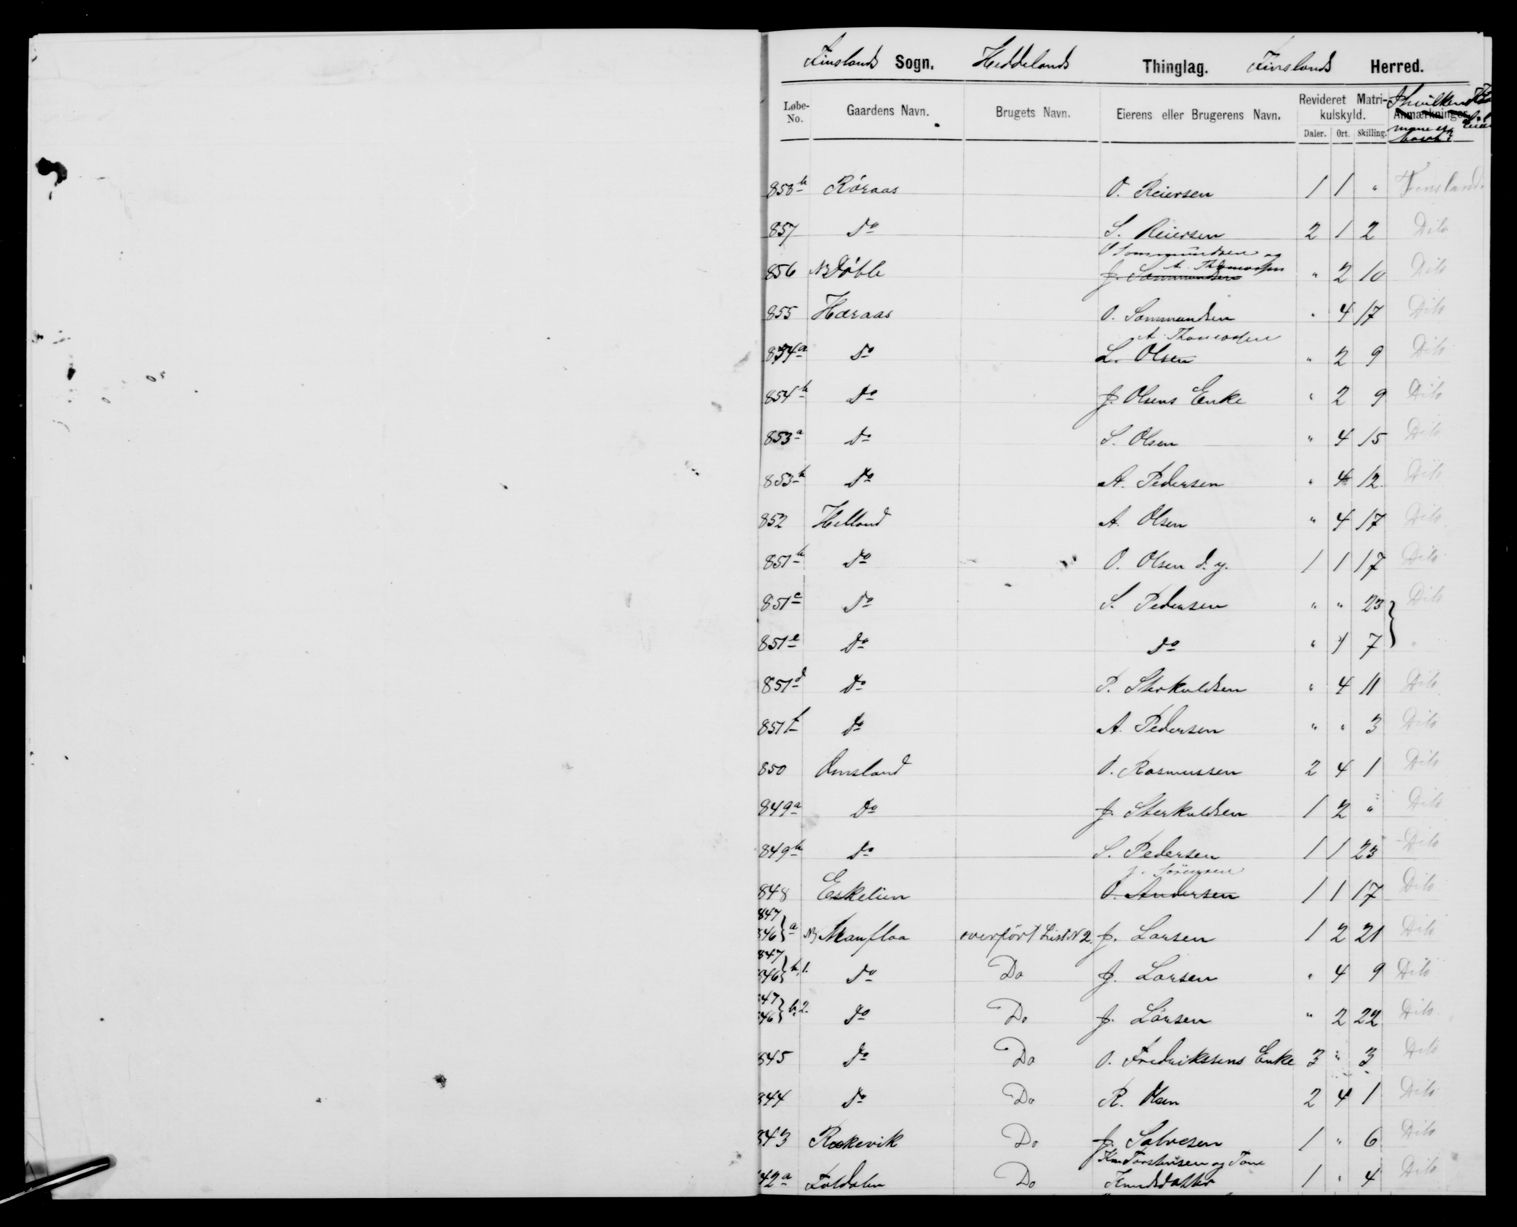 Finslands Sogn. Heddelands Thinglag. Finslands Herred.
Løbe-No. Gaardens Navn. Brugets Navn. Eierens eller Brugerens Navn. Revideret Matrikulskyld. Daler. Ort. Skilling. Anmærkninger.
858b Røraas O. Reiersen 1 1 " Finsland.
857 Do S. Reiersen 2 1 2 Dito
O Sommundsen og
A. Thomassen
856 Støble J. Sommundsen " 2 10 Dito
855 Høraas O. Sommundsen " 4 17 Dito
A. Thomassen
854a Do L. Olsen " 2 9 Dito
854b Do J. Olsens Enke " 2 9 Dito
853a Do S. Olsen " 4 15 Dito
853b Do A. Pedersen " 4 12 Dito
852 Helland A. Olsen " 4 17 Dito
851b Do O. Olsen d. y. 1 1 17 Dito
851c Do S. Pedersen " " 23 Dito
851e Do Do " 1 7 "
851d Do P. Sterkuldsen " 4 11 Dito
851f Do A. Pedersen " " 3 Dito
850 Omsland O. Rasmussen 2 4 1 Dito
849a Do J. Sterkuldsen 1 2 " Dito
849b Do S. Pedersen 1 1 23 Dito
J. Sørensen
848 Eskelien O. Andersen 1 1 17 Dito
847
846 a Manflaa overført List N 2. J. Larsen 1 2 21 Dito
847
846 b, 1. Do Do J. Larsen " 4 9 Dito
847
846 b, 2. Do Do J. Larsen " 2 22 Dito
845 Do Do O. Fredriksens Enke 3 " 3 Dito
844 Do Do R. Olsen 2 4 1 Dito
843 Røkevik Do J. Salvesen 1 " 6 Dito
Torstensen og Tone
842a Foldalen Do Knudsdatter 1 " 4 Dito